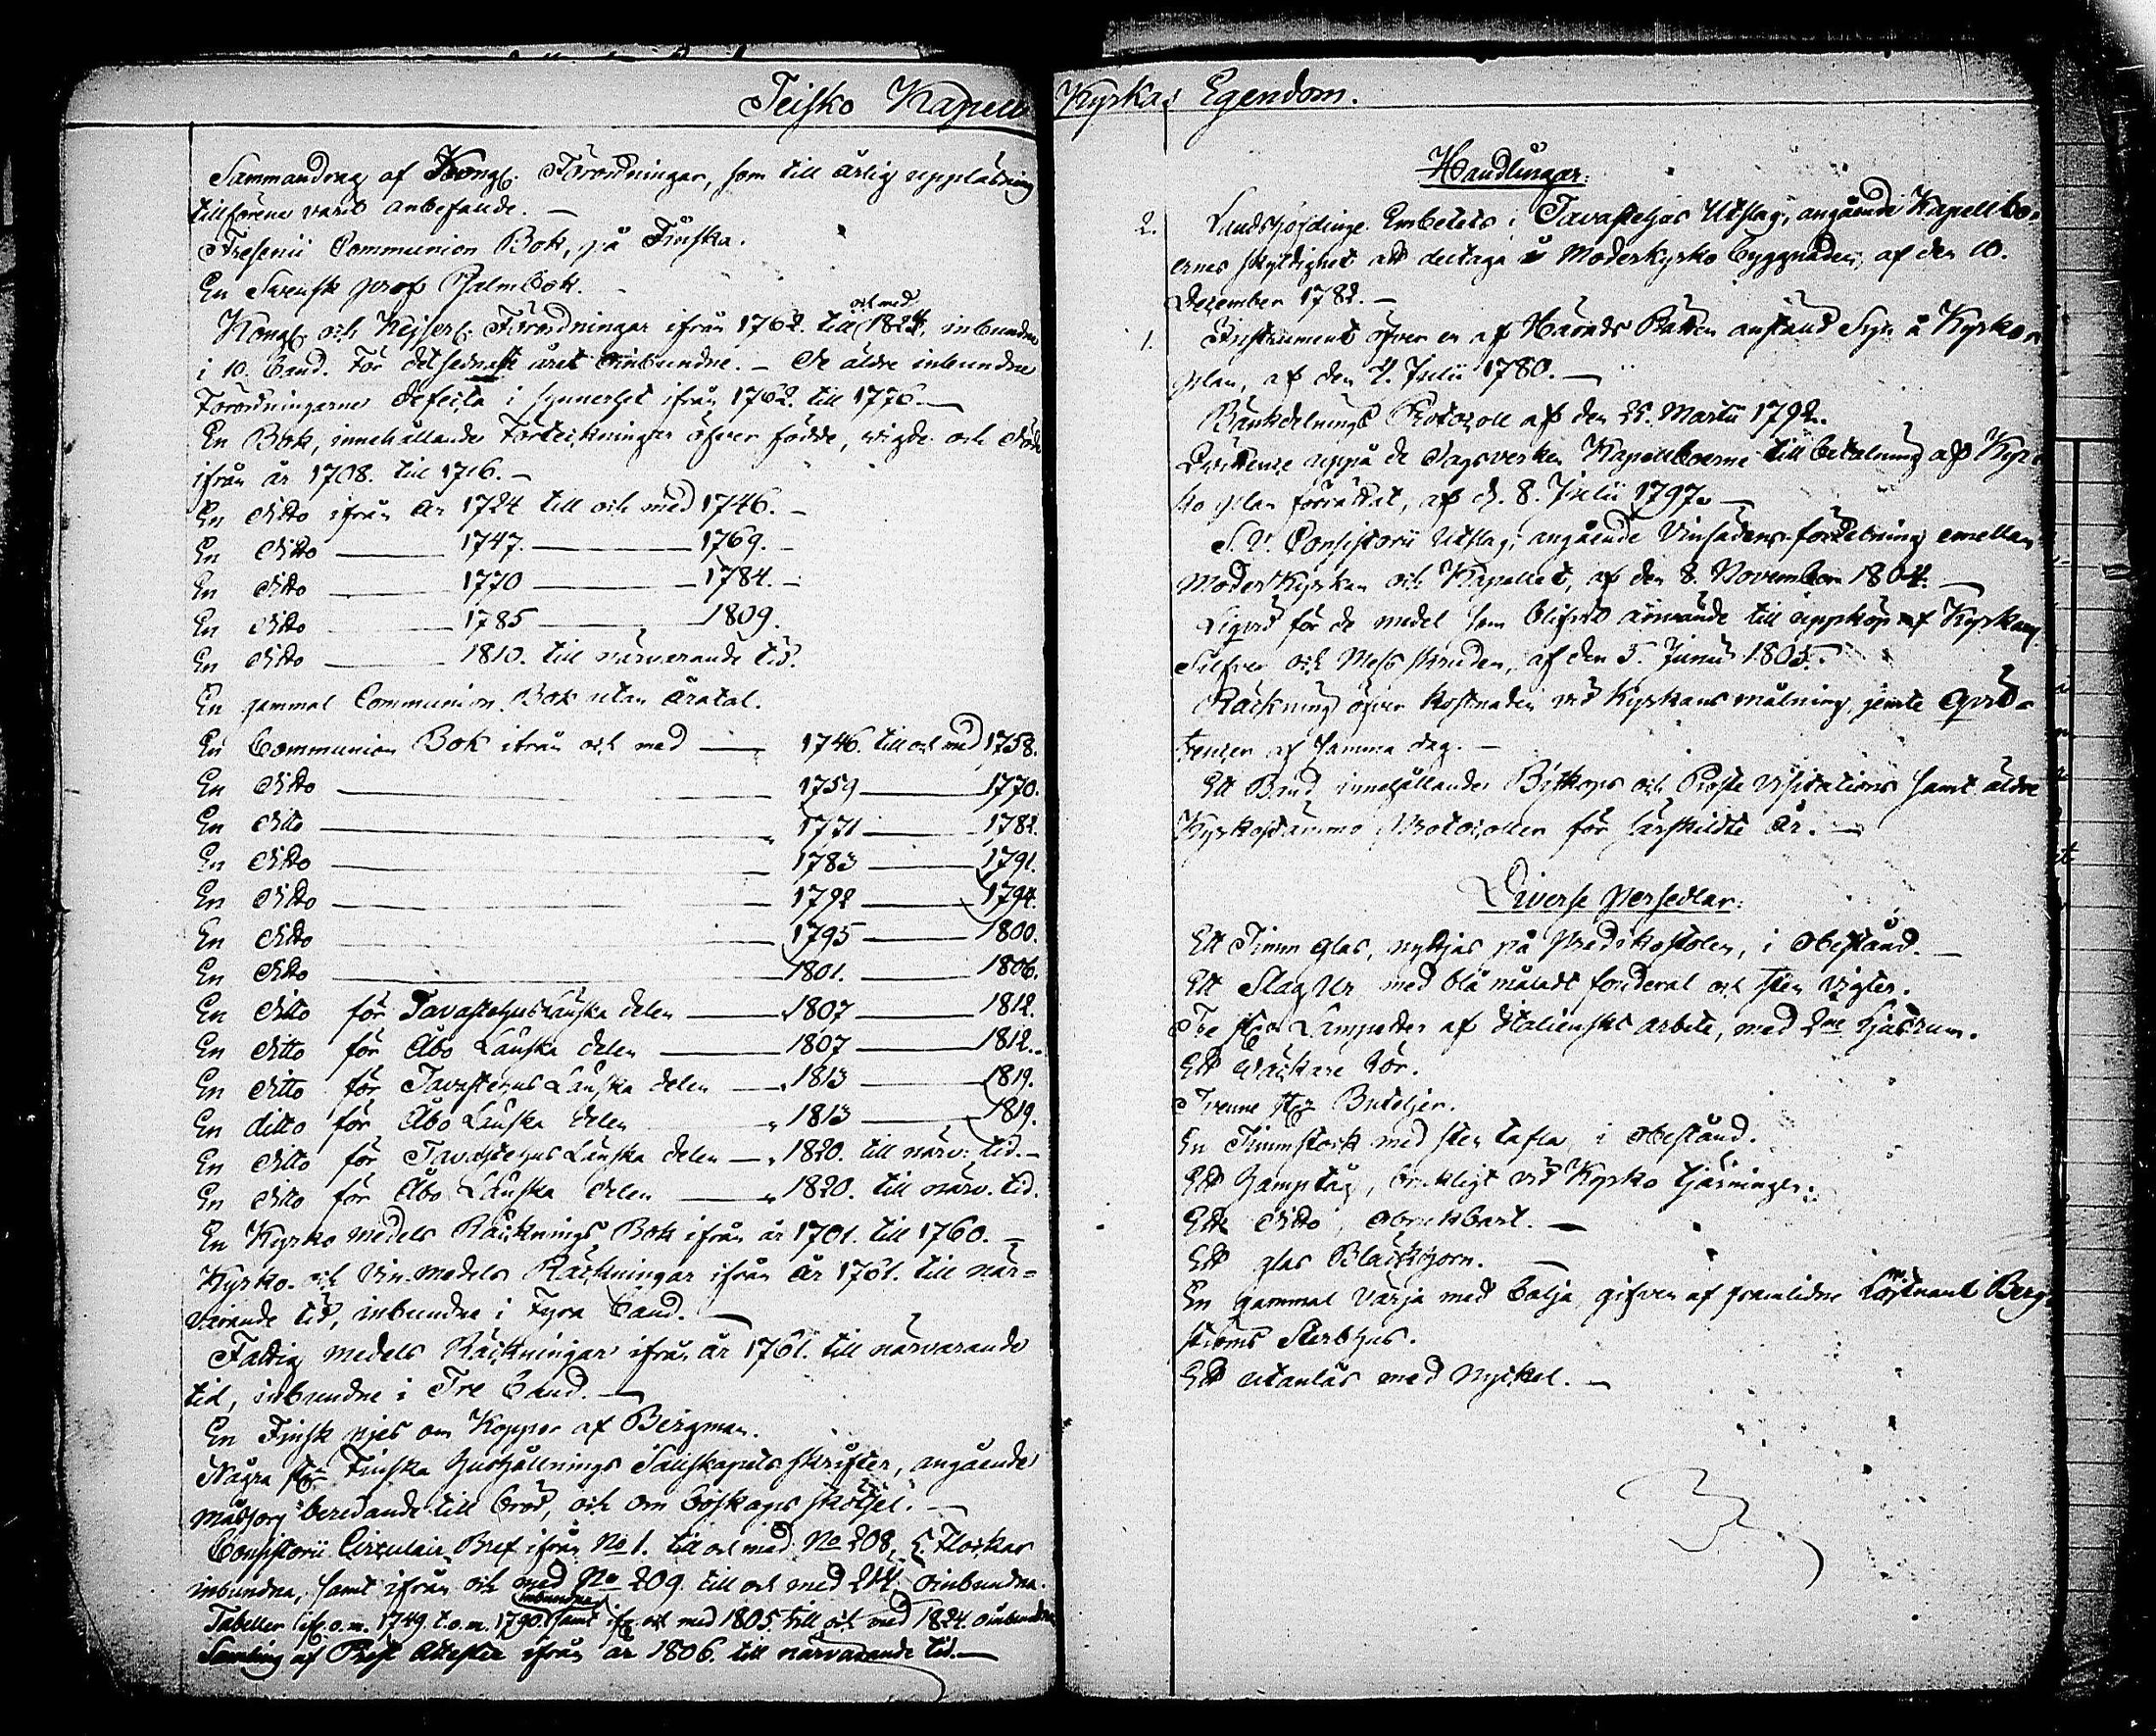 Teisko Kapell Kyrkas Egendom.
Sammandrag af Kongl. Förordningar, som till årlig uppläsning
tillförene varit anbefalde. —
Fresenii Communion Bok, på Finska.
En Svensk prof Psalmbok. —
Kongl. och Kejserl. Förordningar ifrån 1762. till och med 1824, inbundne
i 10. band. För det sednaste året oinbundne. — De äldre inbundne
Förordningarne defecta i synnerhet ifrån 1762. till 1776. —
En Bok, innehållande Förteckningar öfver födde, vigde och döde
ifrån år 1708. till 1716. —
En ditto ifrån år 1724 till och med 1746. —
En ditto — 1747. — 1769. —
En ditto — 1770 — 1784. —
En ditto — 1785 — 1809.
En ditto — 1810. till närvarande tid.
En gammal Communion Bok utan åratal.
En Communion Bok ifrån och med — 1746. till och med 1758.
En ditto — 1759 — 1770.
En ditto — 1771 — 1782.
En ditto — 1783 — 1791.
En ditto — 1792 — 1794.
En ditto — 1795 — 1800.
En ditto — 1801. — 1806.
En ditto för Tavastehus Länska delen — 1807 — 1812.
En ditto för Åbo Länska delen — 1807 — 1812.
En ditto för Tavastehus Länska delen — 1813 — 1819.
En ditto för Åbo Länska delen — 1813 — 1819.
En ditto för Tavastehus Länska delen — 1820. till närv. tid. —
En ditto för Åbo Länska delen — 1820. till närv. tid.
En Kyrko medels Räknings Bok ifrån år 1701. till 1760. —
Kyrko- och Vin-medels Räkningar ifrån år 1761. till när=
varande tid, inbundne i Fyra band. —
Fattig medels Räkningar ifrån år 1761. till närvarande
tid, inbundne i Tre band. —
En Finsk pjes om Koppor af Bergman.
Några st. Finska Hushållnings Sällskapets skrifter, angående
måssors beredande till bröd, och om boskaps skötsel. —
Consistorii Circulair Bref ifrån No 1. till och med No 208, 5. Flockar
inbundna, samt ifrån och med No 209 till och med 214. oinbundna.
Tabeller ifr. o. m. 1749. t. o. m. 1790. inbundna samt ifr. och med 1805. till och med 1824. oinbundna
Samling af Prest Attester ifrån år 1806. till närvarande tid. —
Handlingar:
2. Landshöfdinge Embetets i Tavastehus Utslag, angående Kapellbo=
ernes skyldighet att deltaga i Moderkyrko byggnaden, af den 10.
December 1782. —
1. Instrument öfver en af Härads Rätten anstäld Syn å Kyrko
plan, af den 4. Julii 1780. —
Bänkdelnings Protocoll af den 25. Martii 1792.
Qvittence uppå de dagsverken Kapellboerne till betalning af Kyr=
ko plan förrättat, af d. 8. Julii 1797. —
S. V. Consistorii Utslag, angående Vinsädens fördelning emellan
Moder Kyrkan och Kapellet, af den 8. November 1804. —
Liqvid för de medel som blifvit använde till uppköp af Kyrkans
Silfver och Mess skruden, af den 5. Junii 1805.
Räkning öfver kostnaden vid Kyrkans målning, jemte qvit=
tencer af samma dag. —
Ett Band innehållande Biskops och Prosts Visitations samt äldre
Kyrkostämmo Protocoller för särskildte år. —
Diverse persedlar:
Ett Timm glas, nyttjas på Predikostolen, i obestånd. —
Ett Slag Ur med blå måladt fouderal och sten vigter.
Tre st. Lampetter af Italienskt arbete, med 2ne ljusrum.
Ett väckare rör.
Tvenne st. Buteljer.
En Timmstock med sten tafla i obestånd.
Ett Hamptåg, brukligt vid Kyrko tjärningen.
Ett ditto, obrukbart. —
Ett glas Bläckhorn. —
En gammal värja med balja, gifven af framlidne Löjtnant Berg=
ströms Sterbhus.
Ett utanlås med nyckel. —